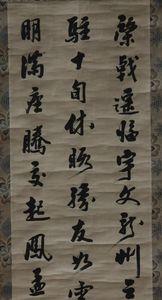 棨戟遙臨宇文新州之
駐十旬休暇勝友如雲
朋滿座騰蛟起鳳孟